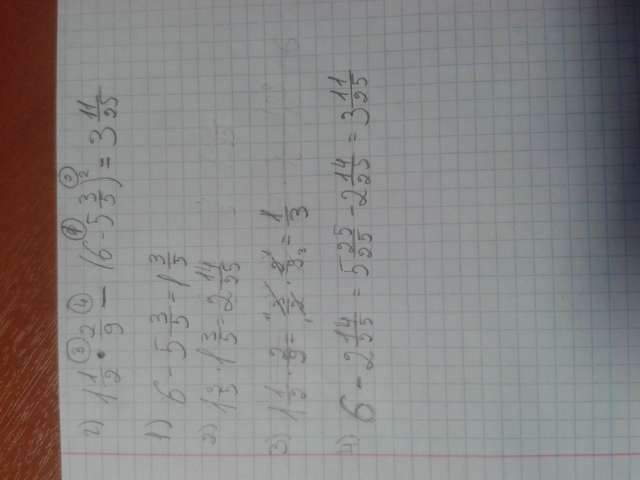 г) 1 1/2 ③ • 2/9 ④ — (6 ① - 5 3/5)² ② = 3 11/25
1) 6 - 5 3/5 = 1 3/5
2) 1 3/5 · 1 3/5 = 2 14/25
3) 1 1/2 · 2/9 = 3/2 · 2/9 = 1/3
4) 6 - 2 14/25 = 5 25/25 - 2 14/25 = 3 11/25